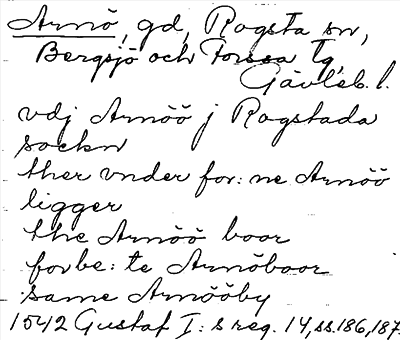 Arnö, gd, Rogsta sn,
Bergsjö och Forssa tg,
Gävleb. l.
vdj Arnöö j Rogstada
sockn
ther vnder for: ne Arnöö
ligger
the Arnöö boar
forbe: te Arnöboar
same Arnööby
1542 Gustaf I: s reg. 14, ss. 186, 187.